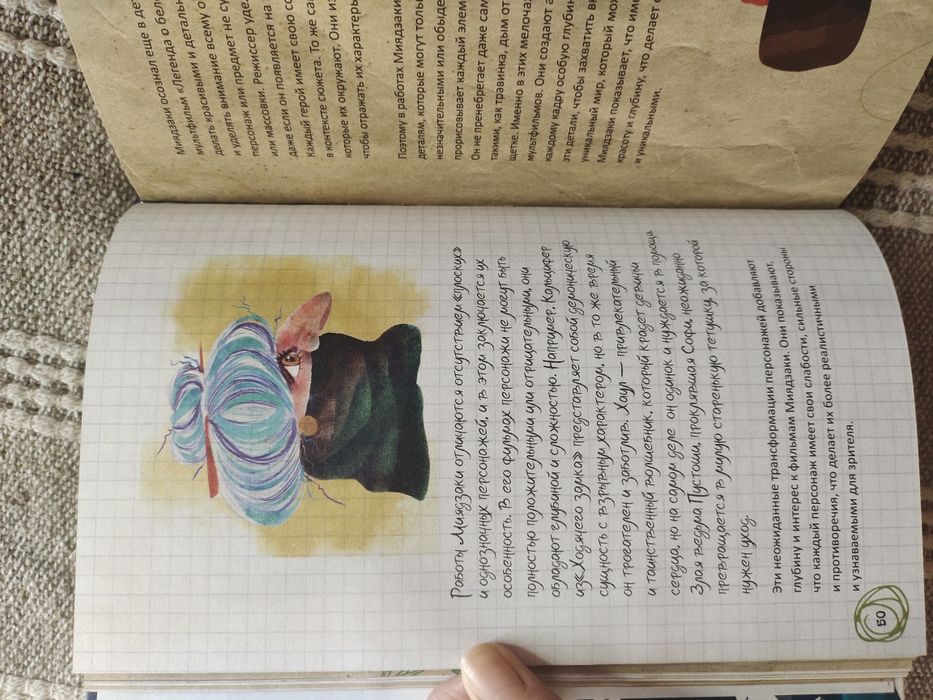 Миядзаки осознал еще в дет
мультфильм «Легенда о бело
мультфильм красивыми и деталь
делать внимание всему о
и уделять внимание не су
персонаж или предмет не су
или массовки. Режиссер уделя
даже если он появляется на
Каждый герой имеет свою со
в контексте сюжета. То же са
которые их окружают. Они из
чтобы отражать их характеры
Поэтому в работах Миядзаки
деталям, которые могут толь
незначительными или обыде
прорисовывает каждый элем
Он не пренебрегает даже сам
такими, как травинка, дым от
щетке. Именно в этих мелочах
мультфильмов. Они создают а
каждому кадру особую глубин
эти детали, чтобы захватить вн
уникальный мир, который мож
Миядзаки показывает, что име
красоту и глубину, что делает е
и уникальными.
Работы Миядзаки отличаются отсутствием «плоских»
и однозначных персонажей, и в этом заключается их
особенность. В его фильмах персонажи не могут быть
полностью положительными или отрицательными, они
обладают глубиной и сложностью. Например, Кальцифер
из «Ходячего замка» представляет собой демоническую
сущность с взрывным характером, но в то же время
он трогателен и заботлив. Хаул — привлекательный
и таинственный волшебник, который крадет девичьи
сердца, но на самом деле он одинок и нуждается в помощи.
Злая ведьма Пустоши, проклявшая Софи, неожиданно
превращается в милую старенькую тетушку, за которой
нужен уход.
Эти неожиданные трансформации персонажей добавляют
глубину и интерес к фильмам Миядзаки. Они показывают,
что каждый персонаж имеет свои слабости, сильные стороны
и противоречия, что делает их более реалистичными
и узнаваемыми для зрителя.
50